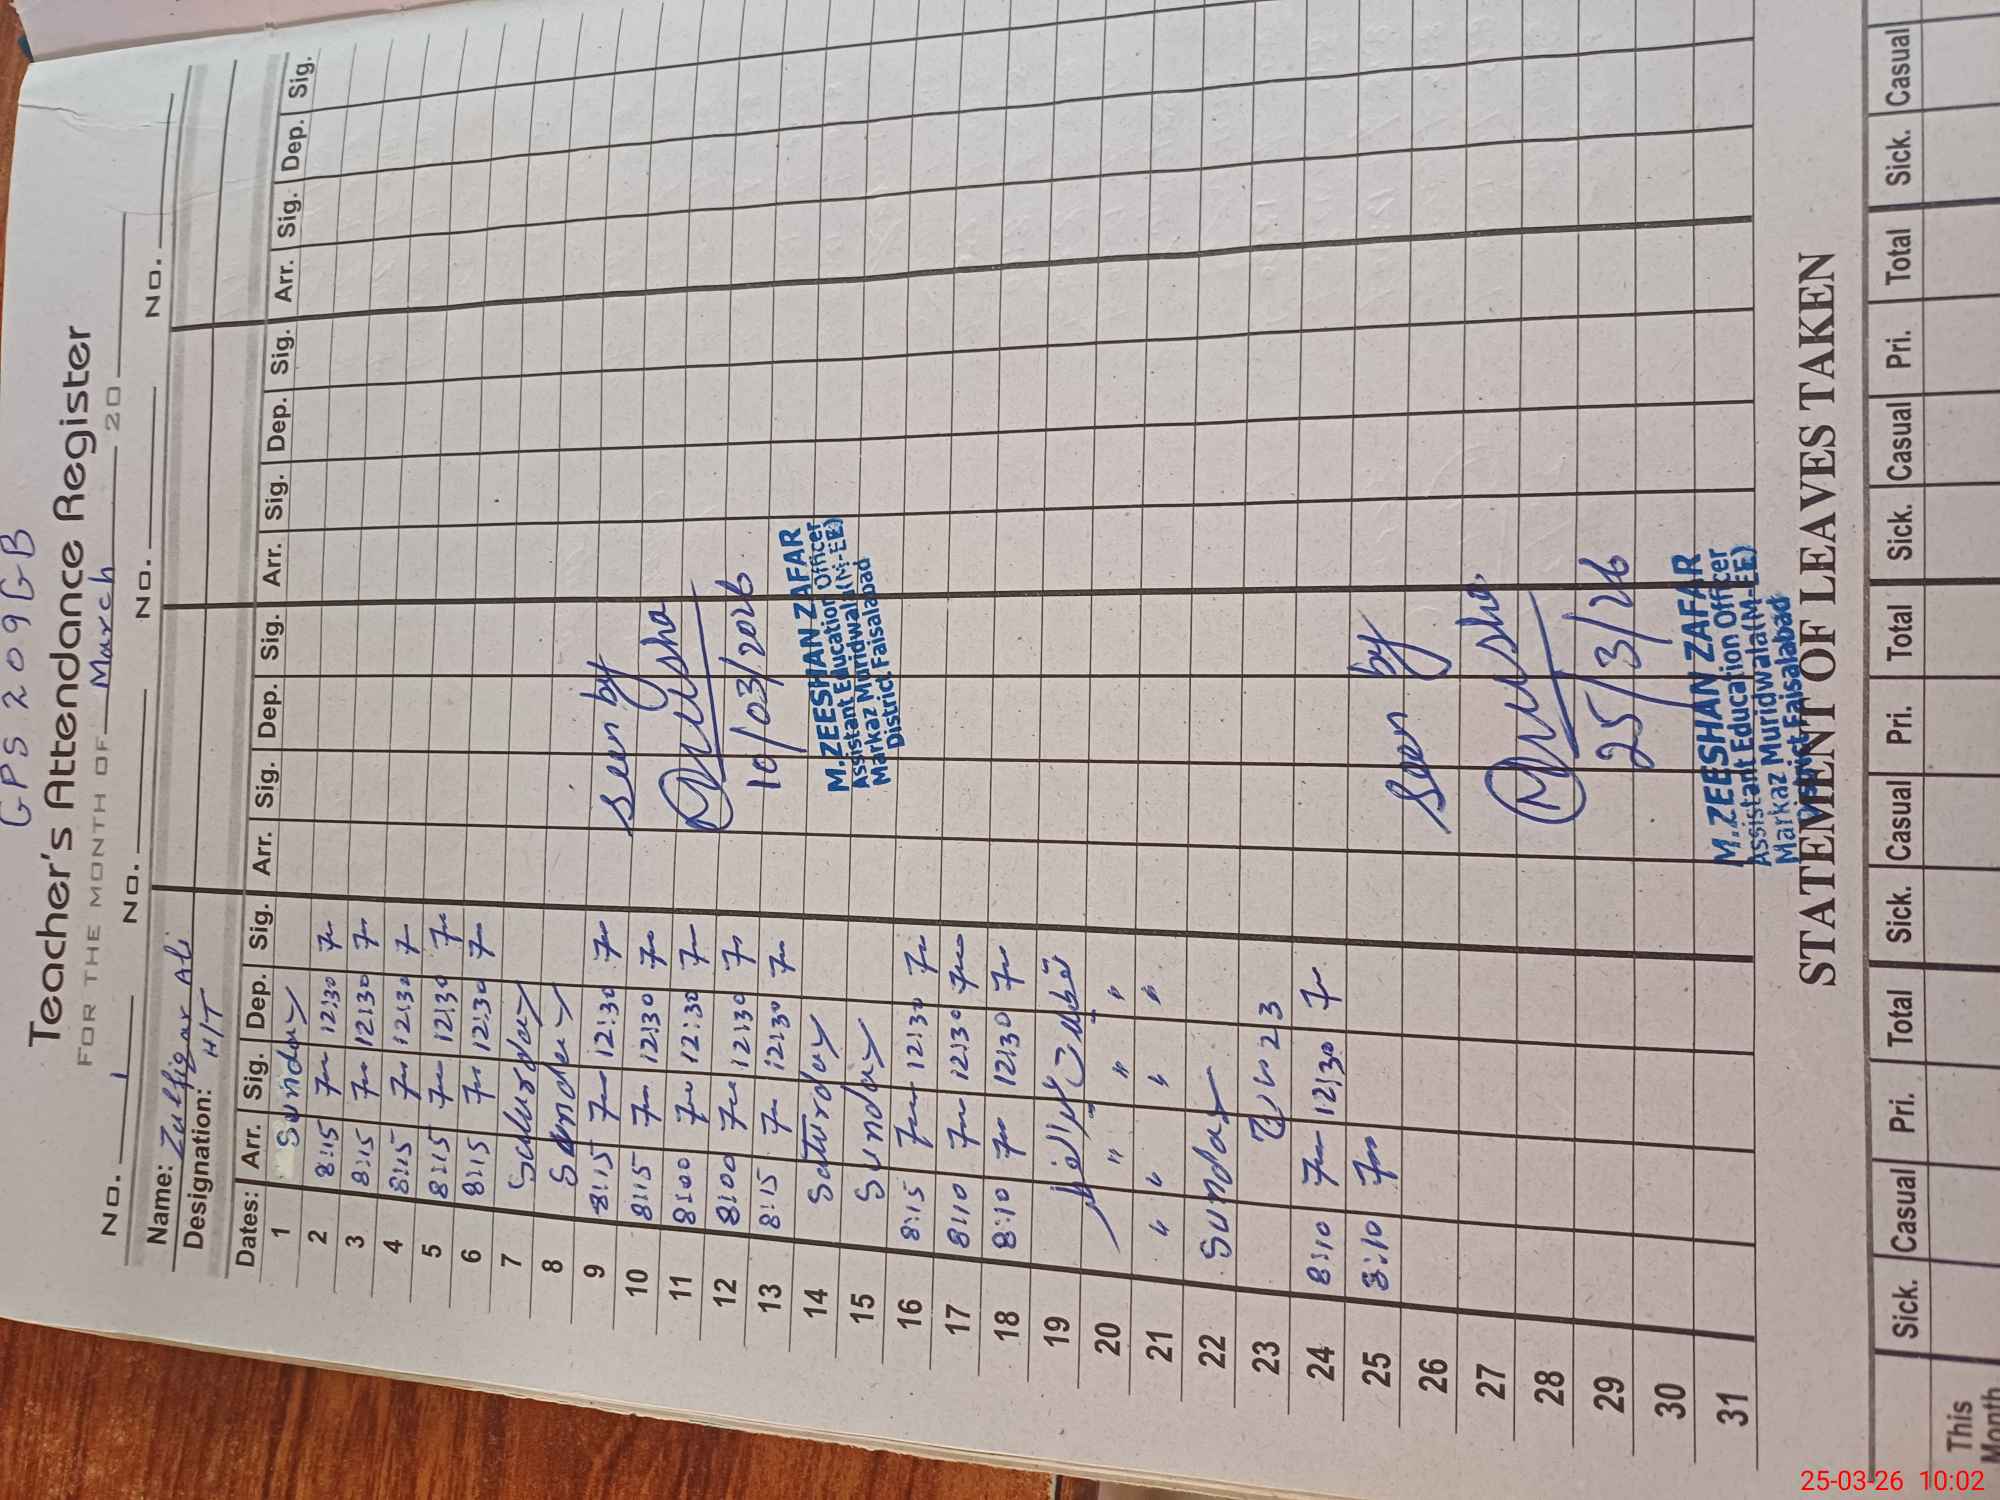 GPS 209 GB
Teacher's Attendance Register
FOR THE MONTH OF March 20
No. 1 No. No. No.
Name: Zulfiqar Ali
Designation: H/T
Dates: Arr. Sig. Dep. Sig. Arr. Sig. Dep. Sig. Arr. Sig. Dep. Sig. Arr. Sig. Dep. Sig.
1 Sunday
2 8:15 12:30
3 8:15 12:30
4 8:15 12:30
5 8:15 12:30
6 8:15 12:30
7 Saturday
8 Sunday
9 8:15 12:30
10 8:15 12:30
11 8:00 12:30
12 8:00 12:30
13 8:15 12:30
14 Saturday
15 Sunday
16 8:15 12:30
17 8:10 12:30
18 8:10 12:30
19
20 " " "
21 " " " "
22 Sunday
23 23
24 8:10 12:30
25 8:10
26
27
28
29
30
31
Seen by
10/03/2026
M.ZEESHAN ZAFAR
Assistant Education Officer
Markaz Muridwala(M-EE)
District Faisalabad
Seen by
25/3/26
M.ZEESHAN ZAFAR
Assistant Education Officer
Markaz Muridwala(M-EE)
District Faisalabad
STATEMENT OF LEAVES TAKEN
Sick. Casual Pri. Total Sick. Casual Pri. Total Sick. Casual Pri. Total Sick. Casual
This
Month
25-03-26 10:02